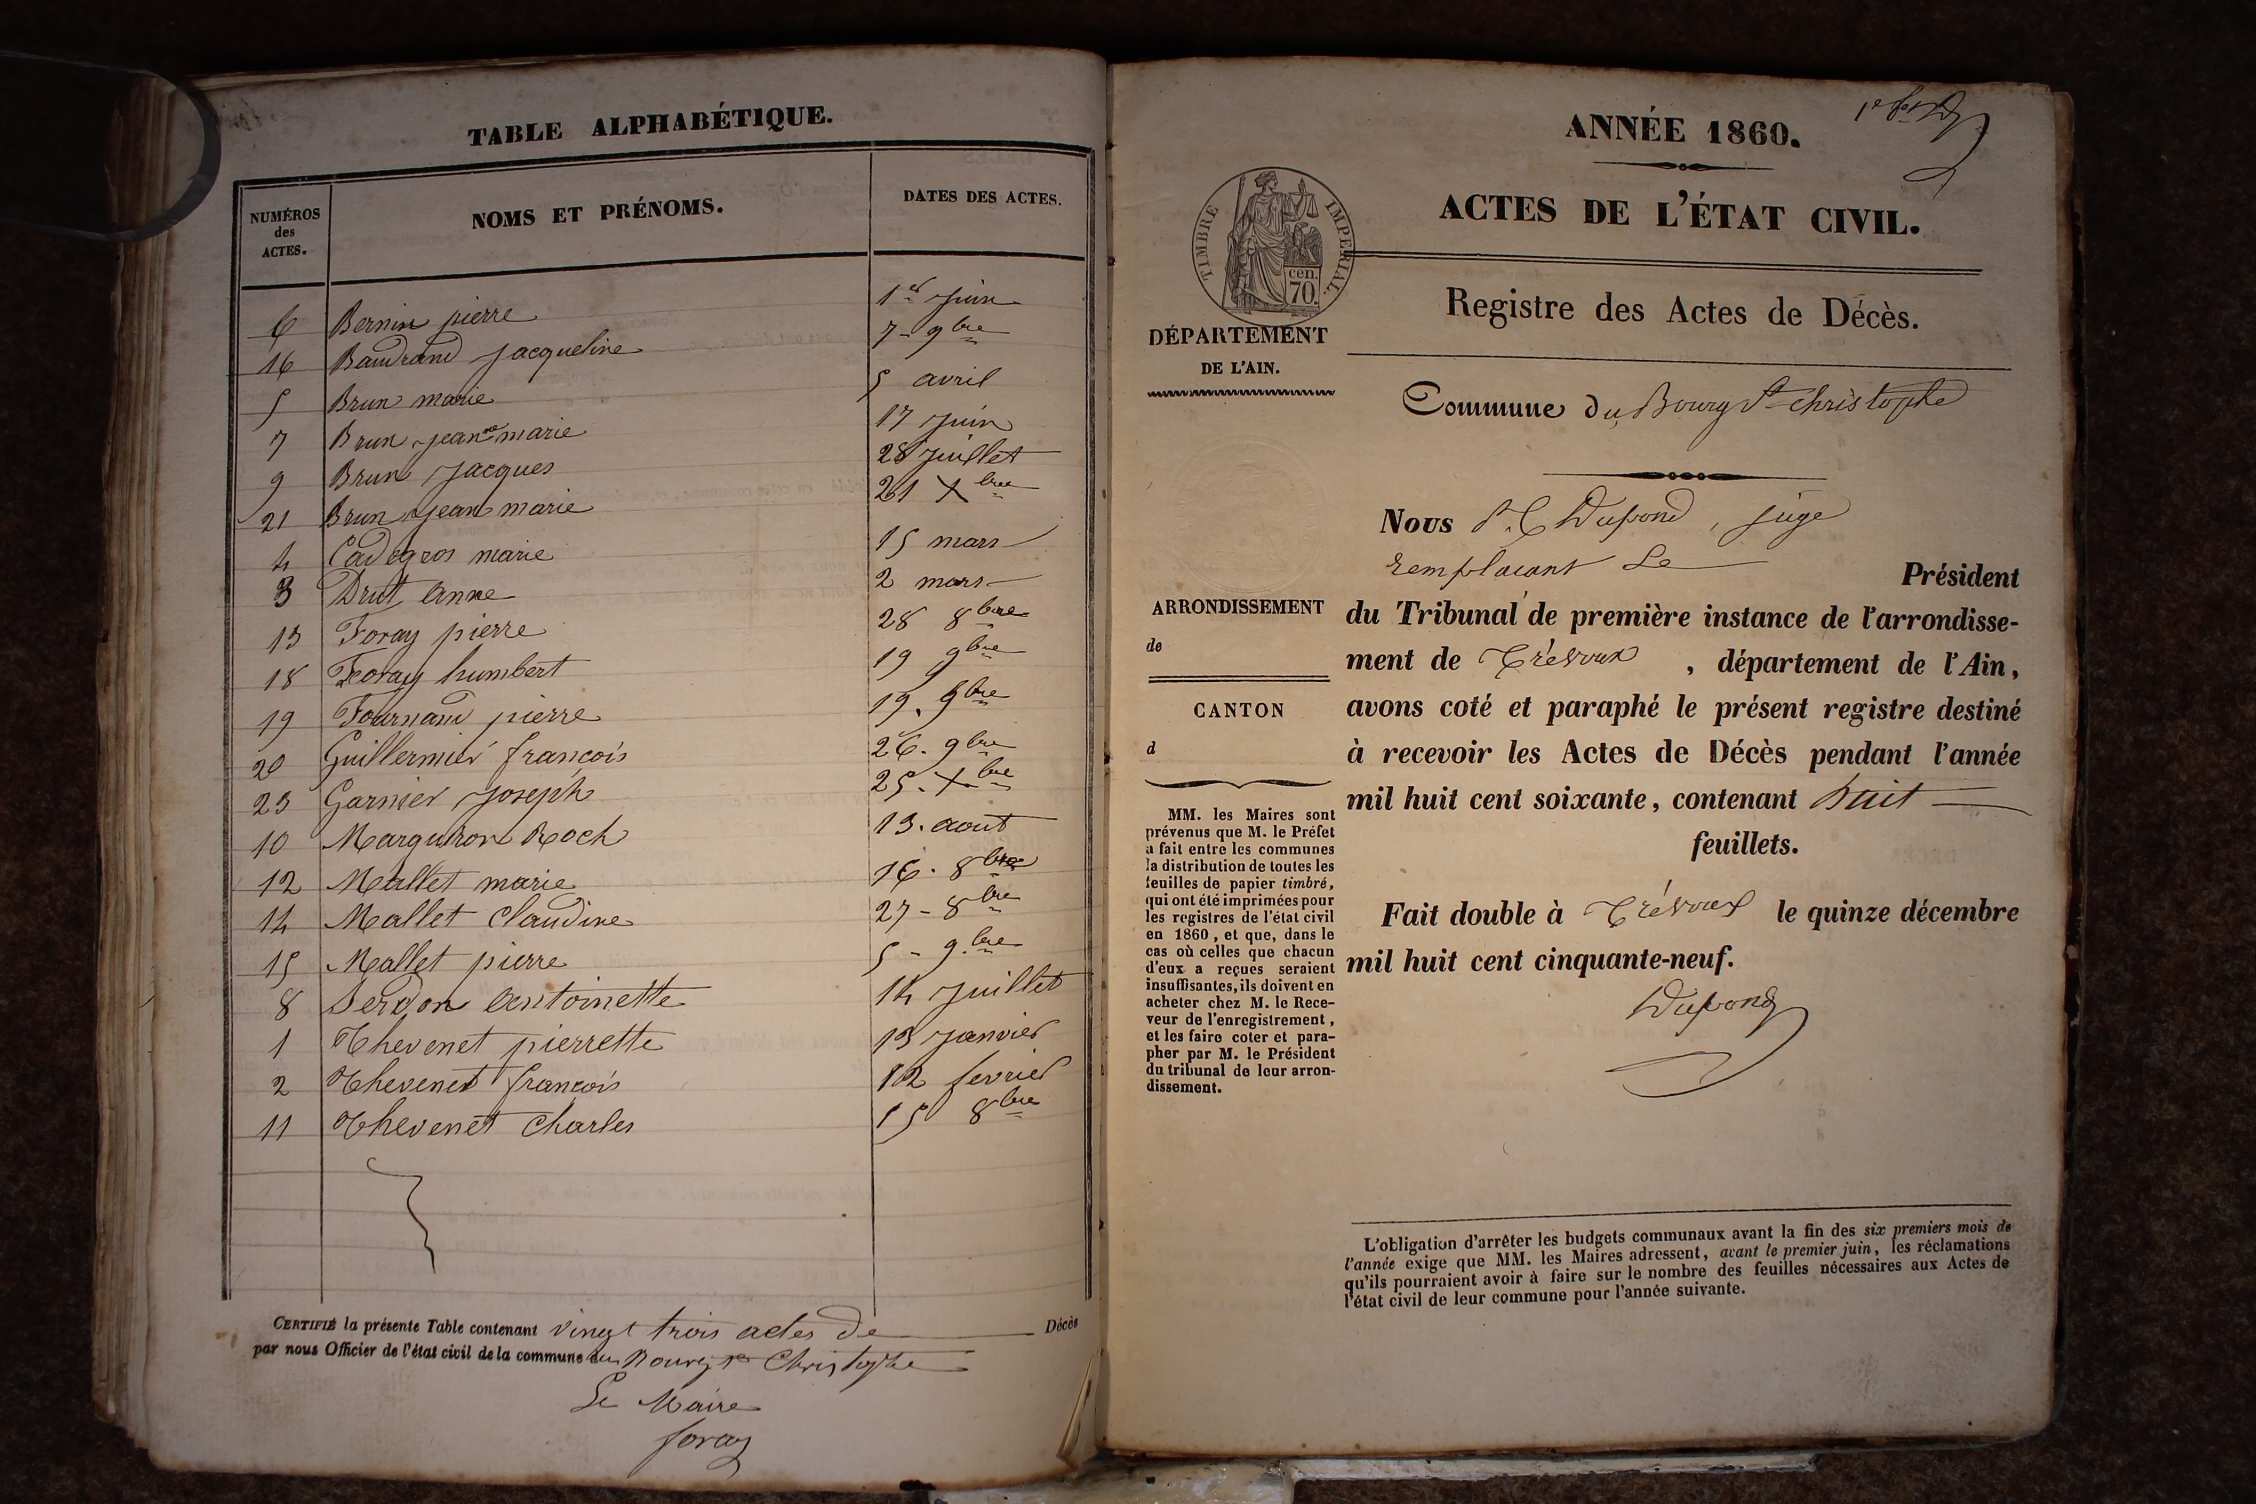 TABLE ALPHABÉTIQUE.
NUMÉROS des ACTES. NOMS ET PRÉNOMS. DATES DES ACTES.
6 Bernin pierre 1er Juin
16 Baudrand Jacqueline 7 - 9bre
5 Brun marie 5 avril
7 Brun jeanne marie 17 Juin
9 Brun Jacques 28 Juillet
21 Brun Jean marie 21 Xbre
4 Cadegros marie 15 mars
3 Drut Anne 2 mars
13 Foray pierre 28 8bre
18 Foray humbert 19 9bre
19 Fournand pierre 19. 9bre
20 Guillermier françois 26. 9bre
23 Garnier Joseph 25. Xbre
10 Marguiron Roch 13. aout
12 Mallet marie 16. 8bre
14 Mallet Claudine 27 - 8bre
15 Mallet pierre 5 - 9bre
8 Serdon Antoinette 14 Juillet
1 Thevenet pierrette 13 Janvier
2 Thevenet françois 12 fevrier
11 Thevenet Charles 15 8bre
CERTIFIÉ la présente Table contenant vingt trois actes de Décès
par nous Officier de l'état civil de la commune du Bourg St Christophe
Le Maire
foray
ANNÉE 1860.
ACTES DE L'ÉTAT CIVIL.
TIMBRE IMPERIAL.
cen.
70.
Registre des Actes de Décès.
DÉPARTEMENT
DE L'AIN.
Commune du Bourg St Christophe
Nous Dupond, juge
remplacant Le Président
du Tribunal de première instance de l'arrondisse-
ment de Trévoux, département de l'Ain,
avons coté et paraphé le présent registre destiné
à recevoir les Actes de Décès pendant l'année
mil huit cent soixante, contenant huit
feuillets.
Fait double à Trévoux le quinze décembre
mil huit cent cinquante-neuf.
Dupond
ARRONDISSEMENT
de
CANTON
d
MM. les Maires sont
prévenus que M. le Préfet
a fait entre les communes
la distribution de toutes les
feuilles de papier timbré,
qui ont été imprimées pour
les registres de l'état civil
en 1860, et que, dans le
cas où celles que chacun
d'eux a reçues seraient
insuffisantes, ils doivent en
acheter chez M. le Rece-
veur de l'enregistrement,
et les faire coter et para-
pher par M. le Président
du tribunal de leur arron-
dissement.
L'obligation d'arrêter les budgets communaux avant la fin des six premiers mois de
l'année exige que MM. les Maires adressent, avant le premier juin, les réclamations
qu'ils pourraient avoir à faire sur le nombre des feuilles nécessaires aux Actes de
l'état civil de leur commune pour l'année suivante.